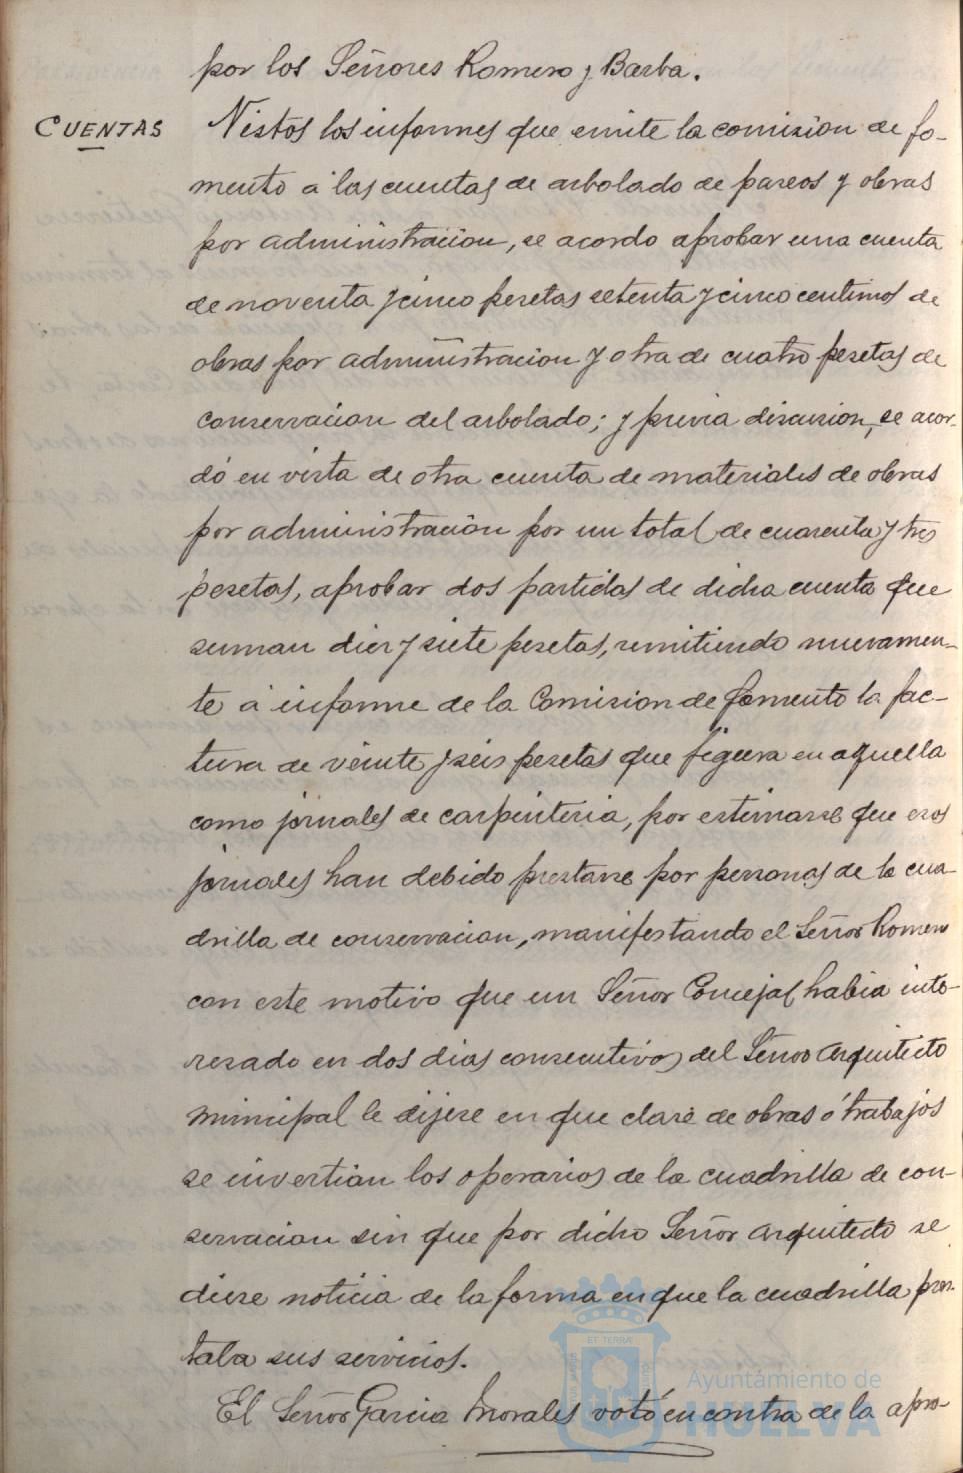 por los Señores Romero y Barba.
CUENTAS
Vistos los informes que emite la comision de fo-
mento á las cuentas de arbolado de paseos y obras
por administracion, se acordo aprobar una cuenta
de noventa y cinco pesetas setenta y cinco centimos de
obras por administracion y otra de cuatro pesetas de
conservacion del arbolado; y previa discusion, se acor-
dó en vista de otra cuenta de materiales de obras
por administracion por un total de cuarenta y tres
pesetas, aprobar dos partidas de dicha cuenta que
suman diez y siete pesetas, remitiendo nuevamen-
te á informe de la Comision de fomento la fac-
tura de veinte y seis pesetas que figura en aquella
como jornales de carpinteria, por estimarse que esos
jornales han debido prestarse por personas de la cua-
drilla de conservacion, manifestando el Señor Romero
con este motivo que un Señor Concejal habia inte-
resado en dos dias consecutivos del Señor Arquitecto
municipal le dijese en que clase de obras ó trabajos
se invertian los operarios de la cuadrilla de con-
servacion sin que por dicho Señor Arquitecto se
diese noticia de la forma en que la cuadrilla pres-
taba sus servicios.
El Señor Garcia Morales votó en contra de la apro-
ET TERRÆ
Ayuntamiento de
HUELVA